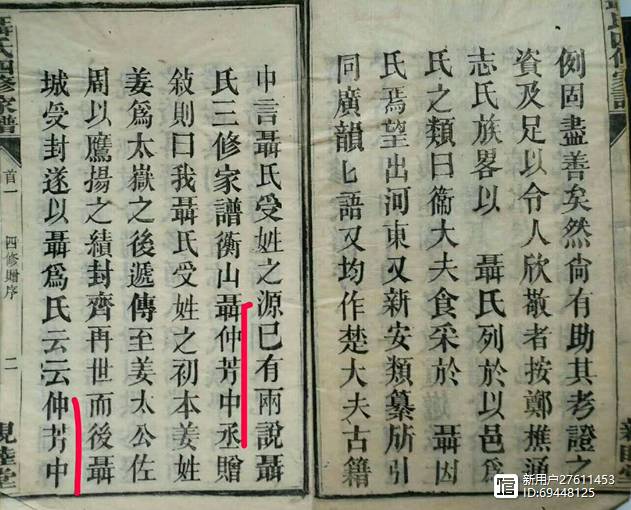 例固盡善矣然尙有助其考證之
資及足以令人欣敬者按鄭樵通
志氏族畧以 聶氏列於以邑爲
氏之類曰衞大夫食采於 聶因
氏焉望出河東又新安類纂所引
同廣韻匕語又均作楚大夫古籍
中言聶氏受姓之源已有兩說聶
氏三修家譜衡山聶仲芳中丞贈
敘則曰我聶氏受姓之初本姜姓
姜爲太嶽之後遞傳至姜太公佐
周以鷹揚之績封齊再世而後聶
城受封遂以聶爲氏云云仲芳中
聶氏四修家譜
首一
四修贈序
二
親睦堂
新用户27611453
ID:69448125